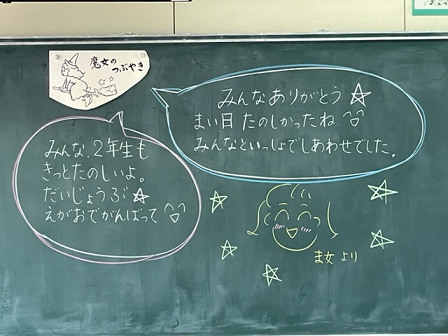 魔女の
つぶやき
みんなありがとう☆
まい日たのしかったね
みんなといっしょでしあわせでした。
みんな、2年生も
きっとたのしいよ。
だいじょうぶ☆
えがおでがんばって
ま女より